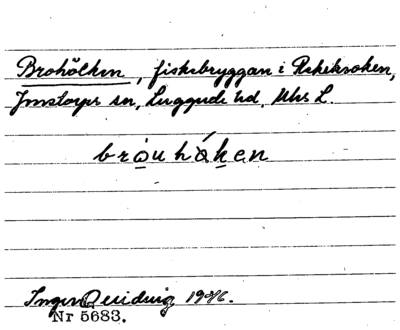 Brohölken, fiskebryggan i Rekeksoken,
Jonstorps sn, Luggude hd, Mhs L.
bròuhóken
Inger 1936.
Nr 5683.